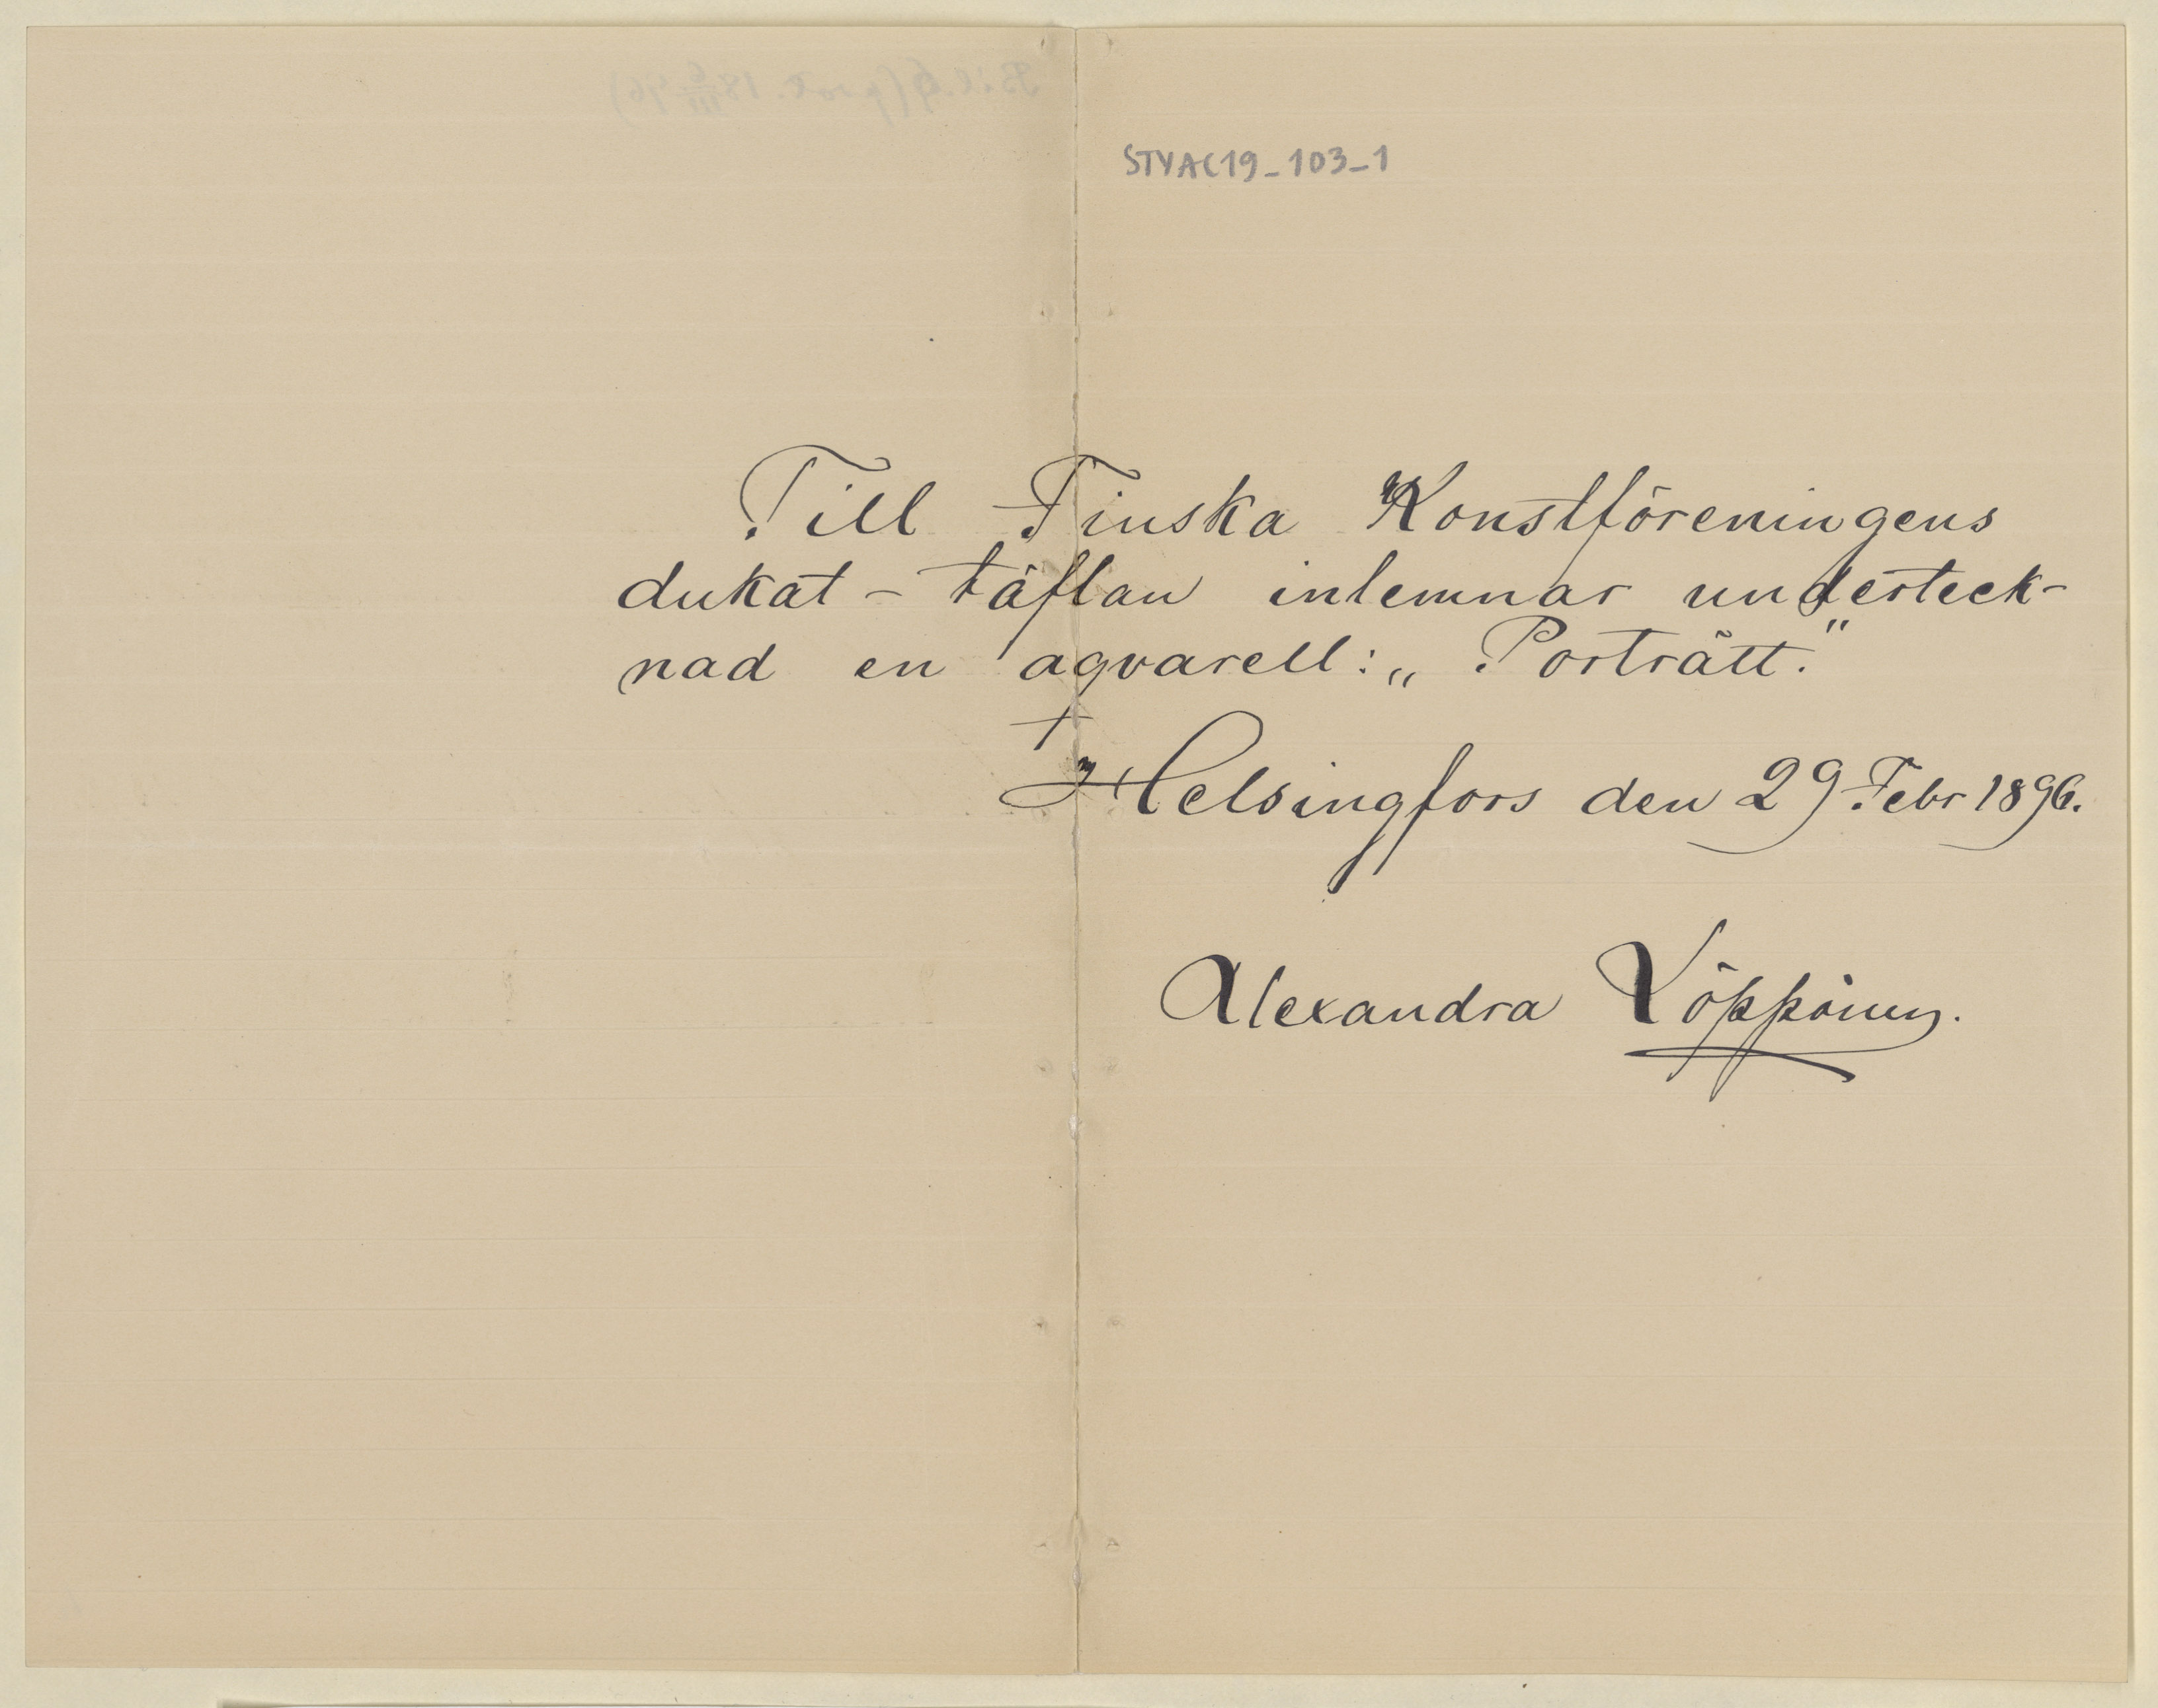 STYAC19_103_1
Till Finska Konstföreningens
dukat-täflan inlemnar underteck-
nad en aqvarell: „ Porträtt."
Helsingfors den 29 Febr 1896.
Alexandra